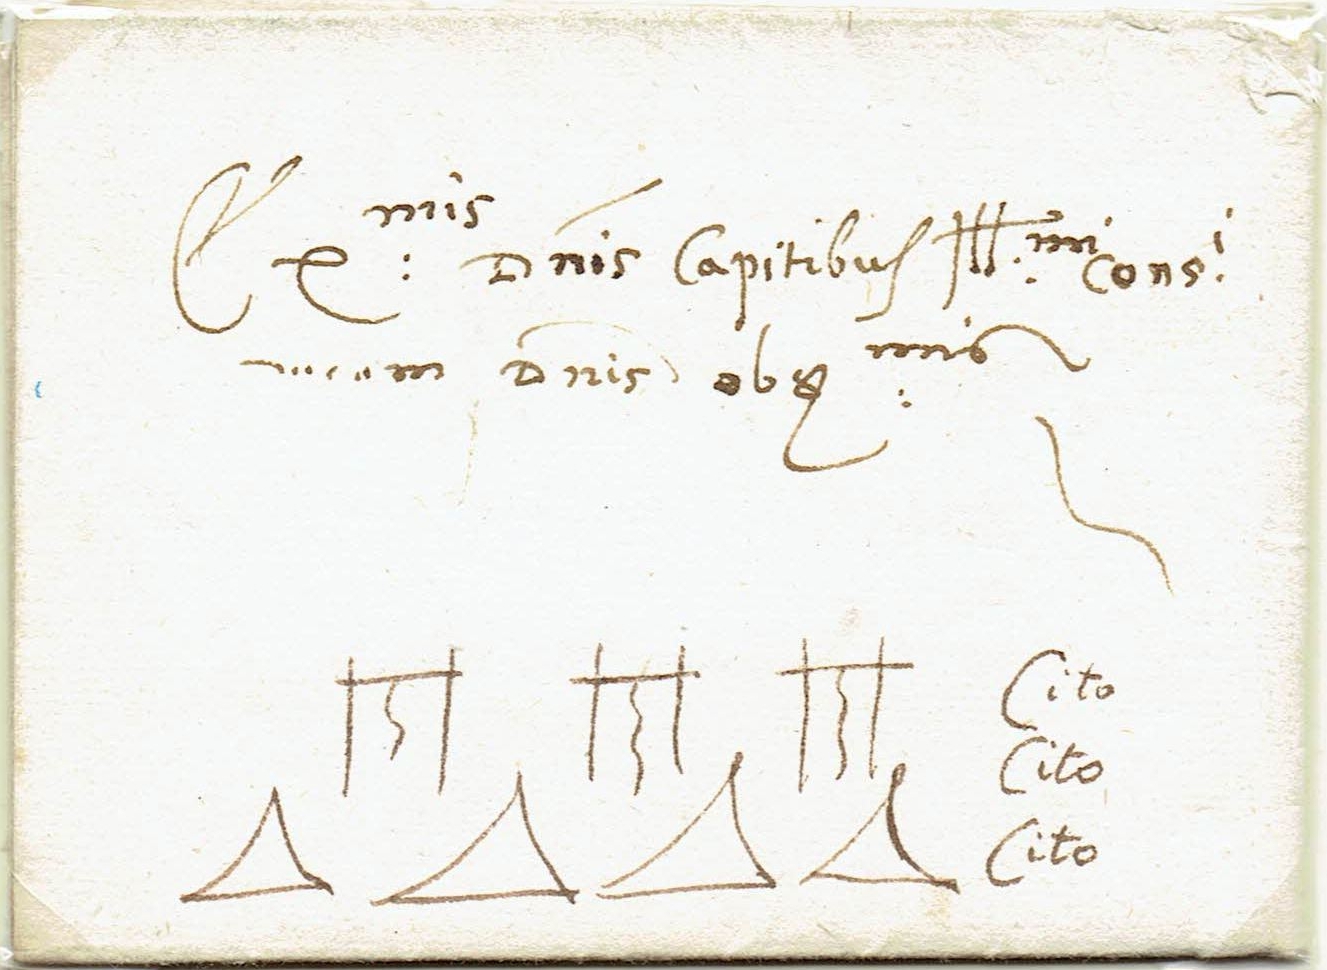 Ex:mis Dnis Capitibus Ill.mi Cons.i
Dnis obs:mis
Cito
Cito
Cito